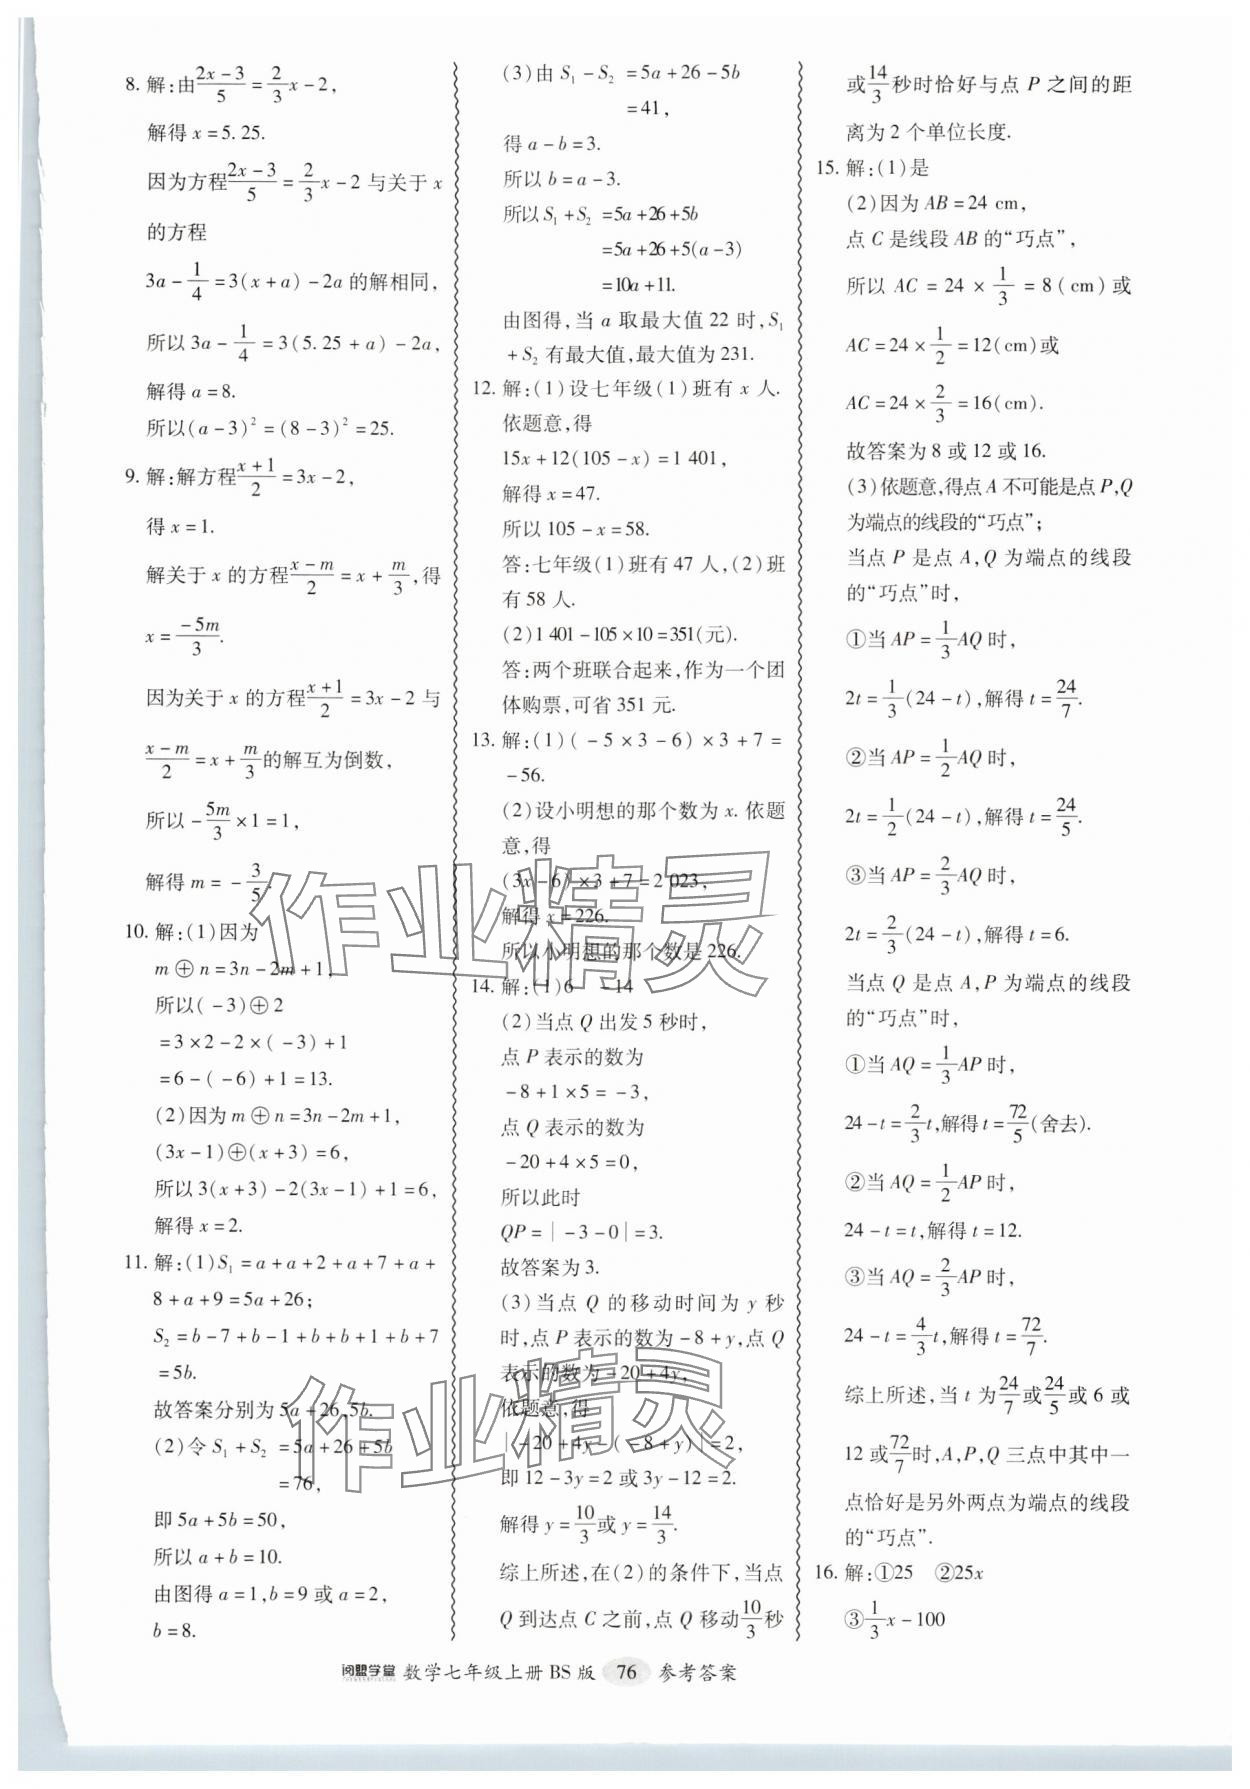 8. 解:由\frac{2x-3}{5}=\frac{2}{3}x-2,
解得 x=5.25.
因为方程\frac{2x-3}{5}=\frac{2}{3}x-2 与关于 x
的方程
3a-\frac{1}{4}=3(x+a)-2a 的解相同,
所以 3a-\frac{1}{4}=3(5.25+a)-2a,
解得 a=8.
所以(a-3)²=(8-3)²=25.
9. 解:解方程\frac{x+1}{2}=3x-2,
得 x=1.
解关于 x 的方程\frac{x-m}{2}=x+\frac{m}{3},得
x=\frac{-5m}{3}.
因为关于 x 的方程\frac{x+1}{2}=3x-2 与
\frac{x-m}{2}=x+\frac{m}{3}的解互为倒数,
所以-\frac{5m}{3}×1=1,
解得 m=-\frac{3}{5}.
10. 解:(1)因为
m⊕n=3n-2m+1,
所以(-3)⊕2
=3×2-2×(-3)+1
=6-(-6)+1=13.
(2)因为 m⊕n=3n-2m+1,
(3x-1)⊕(x+3)=6,
所以 3(x+3)-2(3x-1)+1=6,
解得 x=2.
11. 解:(1)S₁=a+a+2+a+7+a+
8+a+9=5a+26;
S₂=b-7+b-1+b+b+1+b+7
=5b.
故答案分别为 5a+26,5b.
(2)令 S₁+S₂ =5a+26+5b
=76,
即 5a+5b=50,
所以 a+b=10.
由图得 a=1,b=9 或 a=2,
b=8.
(3)由 S₁-S₂ =5a+26-5b
=41,
得 a-b=3.
所以 b=a-3.
所以S₁+S₂ =5a+26+5b
=5a+26+5(a-3)
=10a+11.
由图得,当 a 取最大值 22 时,S₁
+S₂ 有最大值,最大值为 231.
12. 解:(1)设七年级(1)班有 x 人.
依题意,得
15x+12(105-x)=1 401,
解得 x=47.
所以 105-x=58.
答:七年级(1)班有 47 人,(2)班
有 58 人.
(2)1 401-105×10=351(元).
答:两个班联合起来,作为一个团
体购票,可省 351 元.
13. 解:(1)(-5×3-6)×3+7=
-56.
(2)设小明想的那个数为 x. 依题
意,得
(3x-6)×3+7=2 023,
解得 x=226.
所以小明想的那个数是 226.
14. 解:(1)6 -14
(2)当点 Q 出发 5 秒时,
点 P 表示的数为
-8+1×5=-3,
点 Q 表示的数为
-20+4×5=0,
所以此时
QP=|-3-0|=3.
故答案为 3.
(3)当点 Q 的移动时间为 y 秒
时,点 P 表示的数为-8+y,点 Q
表示的数为-20+4y,
依题意,得
|-20+4y-(-8+y)|=2,
即 12-3y=2 或 3y-12=2.
解得 y=\frac{10}{3}或 y=\frac{14}{3}.
综上所述,在(2)的条件下,当点
Q 到达点 C 之前,点 Q 移动\frac{10}{3}秒
或\frac{14}{3}秒时恰好与点 P 之间的距
离为 2 个单位长度.
15. 解:(1)是
(2)因为 AB=24 cm,
点 C 是线段 AB 的“巧点”,
所以 AC=24×\frac{1}{3}=8(cm)或
AC=24×\frac{1}{2}=12(cm)或
AC=24×\frac{2}{3}=16(cm).
故答案为 8 或 12 或 16.
(3)依题意,得点 A 不可能是点 P,Q
为端点的线段的“巧点”;
当点 P 是点 A,Q 为端点的线段
的“巧点”时,
①当 AP=\frac{1}{3}AQ 时,
2t=\frac{1}{3}(24-t),解得 t=\frac{24}{7}.
②当 AP=\frac{1}{2}AQ 时,
2t=\frac{1}{2}(24-t),解得 t=\frac{24}{5}.
③当 AP=\frac{2}{3}AQ 时,
2t=\frac{2}{3}(24-t),解得 t=6.
当点 Q 是点 A,P 为端点的线段
的“巧点”时,
①当 AQ=\frac{1}{3}AP 时,
24-t=\frac{2}{3}t,解得 t=\frac{72}{5}(舍去).
②当 AQ=\frac{1}{2}AP 时,
24-t=t,解得 t=12.
③当 AQ=\frac{2}{3}AP 时,
24-t=\frac{4}{3}t,解得 t=\frac{72}{7}.
综上所述,当 t 为\frac{24}{7}或\frac{24}{5}或 6 或
12 或\frac{72}{7}时,A,P,Q 三点中其中一
点恰好是另外两点为端点的线段
的“巧点”.
16. 解:①25 ②25x
③\frac{1}{3}x-100
作业精灵
作业精灵
阅盟学堂 数学七年级上册 BS 版 76 参考答案